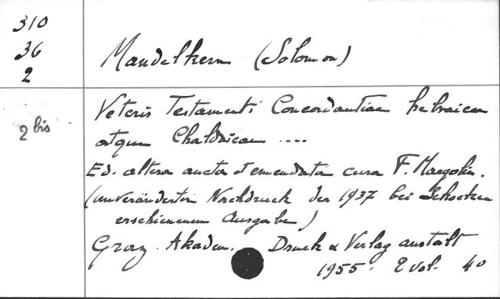 310
36
2
Mandelkern (Solomon)
2 bis
Veteris Testamenti Concordantiae hebraicae
atque Chaldaicae ....
Ed. altera aucta et emendata cura F. Margolin.
(unveränderter Nachdruck der 1937 bei Schocken
erschienenen Ausgabe)
Graz. Akadem. Druck & Verlag anstalt
1955. 2 vol. 40